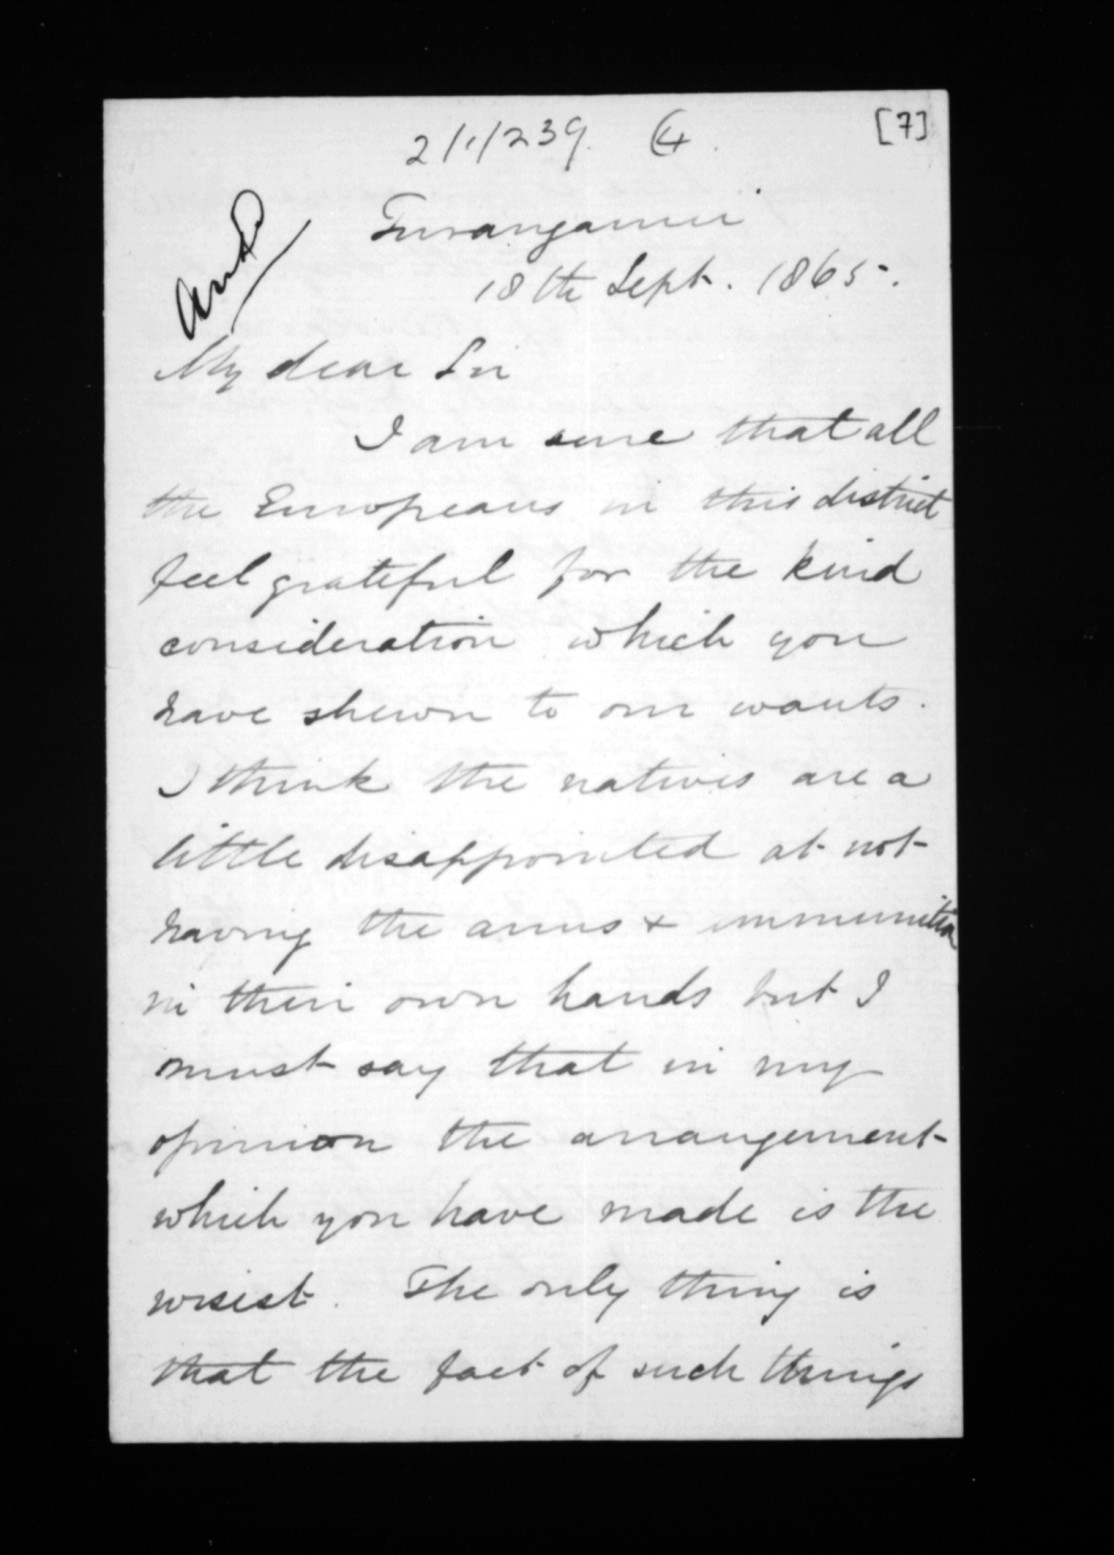 2/1/239. (4).
[7]
Turanganui
18th Sept. 1865.
Ansd
My dear Sir
I am sure that all
the Europeans in this district
feel grateful for the kind
consideration which you
have shewn to our wants.
I think the natives are a
little disappointed at not
having the arms & ammunition
in their own hands but I
must say that in my
opinion the arrangement
which you have made is the
wisest. The only thing is
that the fact of such things